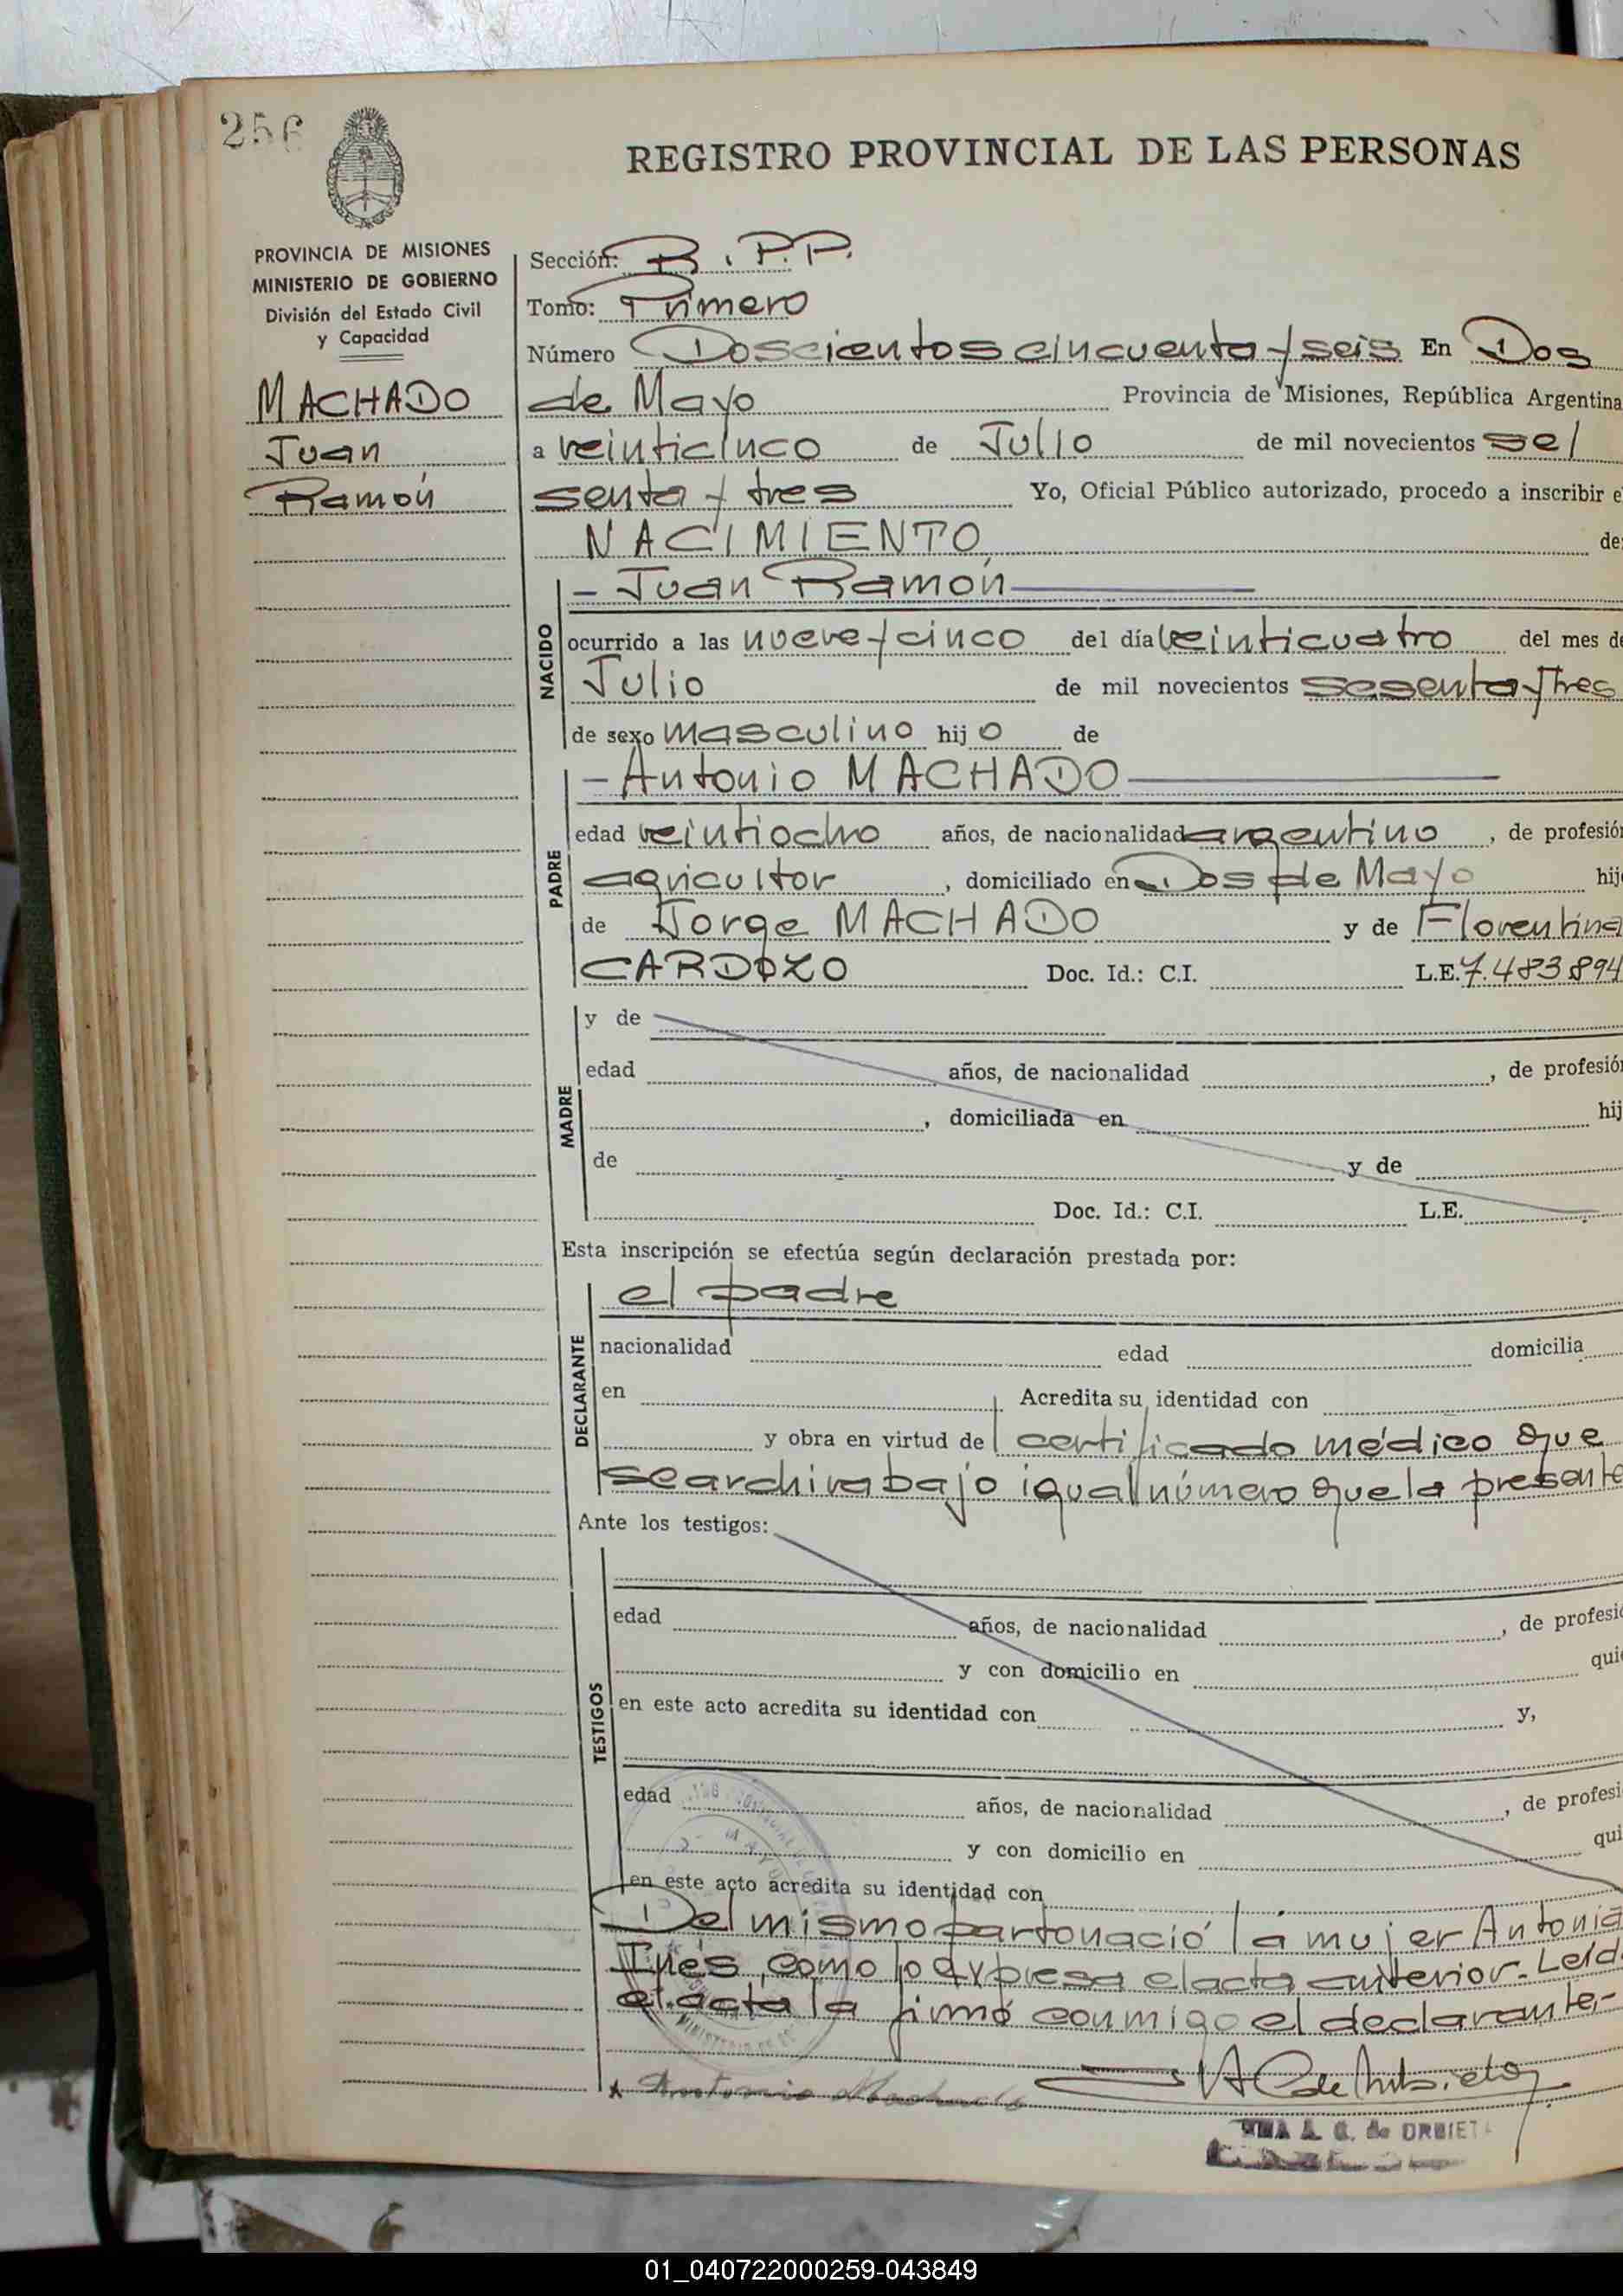 256
REGISTRO PROVINCIAL DE LAS PERSONAS
PROVINCIA DE MISIONES
MINISTERIO DE GOBIERNO
División del Estado Civil
y Capacidad
MACHADO
Juan
Ramón
Sección: B.P.P.
Tomo: Primero
Número Doscientos cincuenta y seis En Dos
de Mayo Provincia de Misiones, República Argentina
a veinticinco de Julio de mil novecientos se/
senta y tres Yo, Oficial Público autorizado, procedo a inscribir e
NACIMIENTO de
NACIDO
- Juan Ramón
ocurrido a las nueve y cinco del día veinticuatro del mes de
Julio de mil novecientos sesenta y tres
de sexo masculino hijo de
PADRE
- Antonio MACHADO
edad veintiocho años, de nacionalidad argentino, de profesión
agricultor, domiciliado en Dos de Mayo hij
de Jorge MACHADO y de Florentina
CARDOZO Doc. Id.: C.I. L.E. 7.483894
MADRE
y de
edad años, de nacionalidad , de profesión
, domiciliada en hij
de y de
Doc. Id.: C.I. L.E.
Esta inscripción se efectúa según declaración prestada por:
DECLARANTE
el padre
nacionalidad edad domicilia
en Acredita su identidad con
y obra en virtud de certificado médico que
se archiva bajo igual número que la presente
Ante los testigos:
TESTIGOS
edad años, de nacionalidad , de profesi
y con domicilio en qui
en este acto acredita su identidad con y,
edad años, de nacionalidad , de profesi
y con domicilio en qui
en este acto acredita su identidad con
Del mismo parto nació la mujer Antonia
Inés, como lo expresa el acta anterior.- Leíd
el acta la firmó conmigo el declarante.-
Antonio Machado
A. C. de ORBIET
01_040722000259-043849